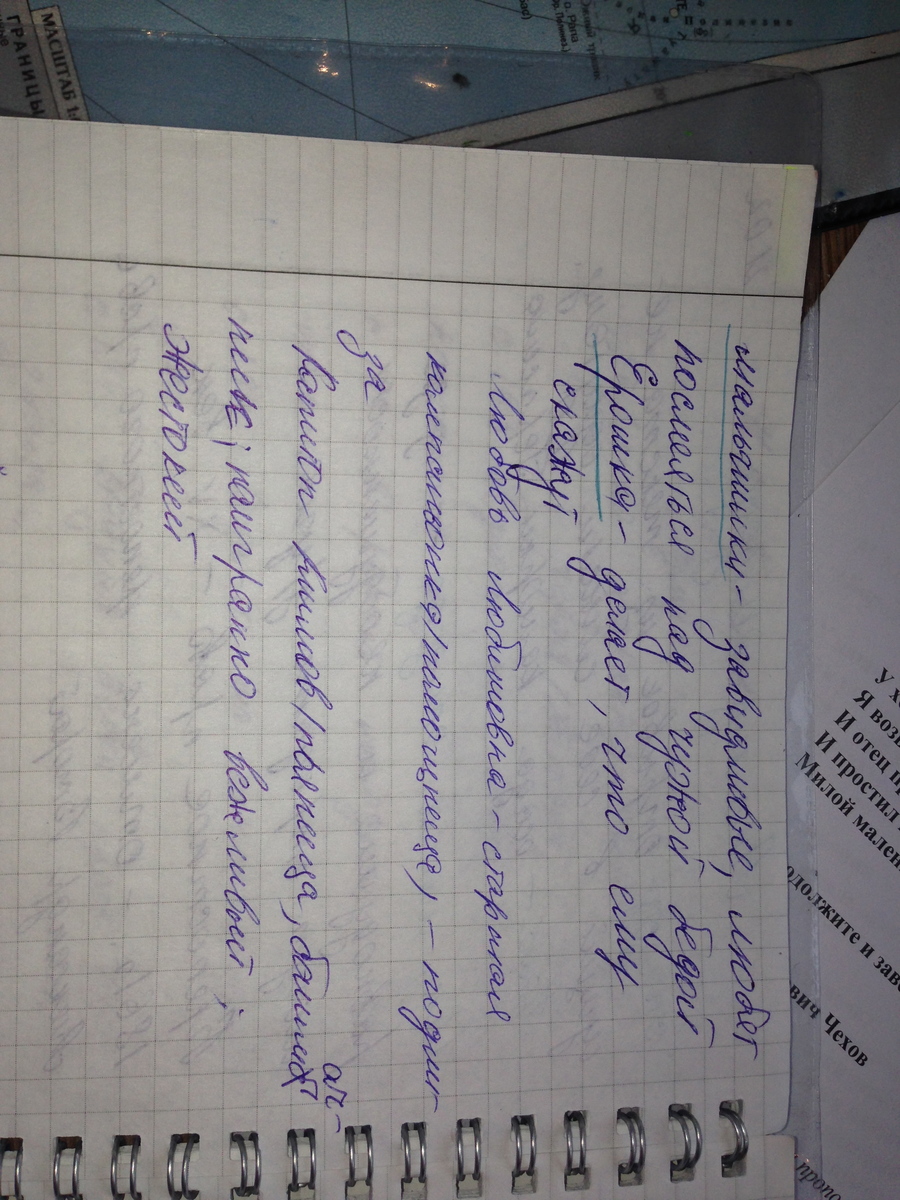 мальчишки - завидливые, любет
посмеяться над чужой бедой
Ерошка - делает, что ему
скажут
Любовь Любимовна - старшая
помощнеца, - подли
за
Капитон Климов/пьянеца,
наиграно вежливый;
жестокий
МАСШТАБ 1:
ГРАНИЦЫ
У х
Я возв
И отец пр
И простил
Милой мален
одолжите и заве
вич Чехов
пропо